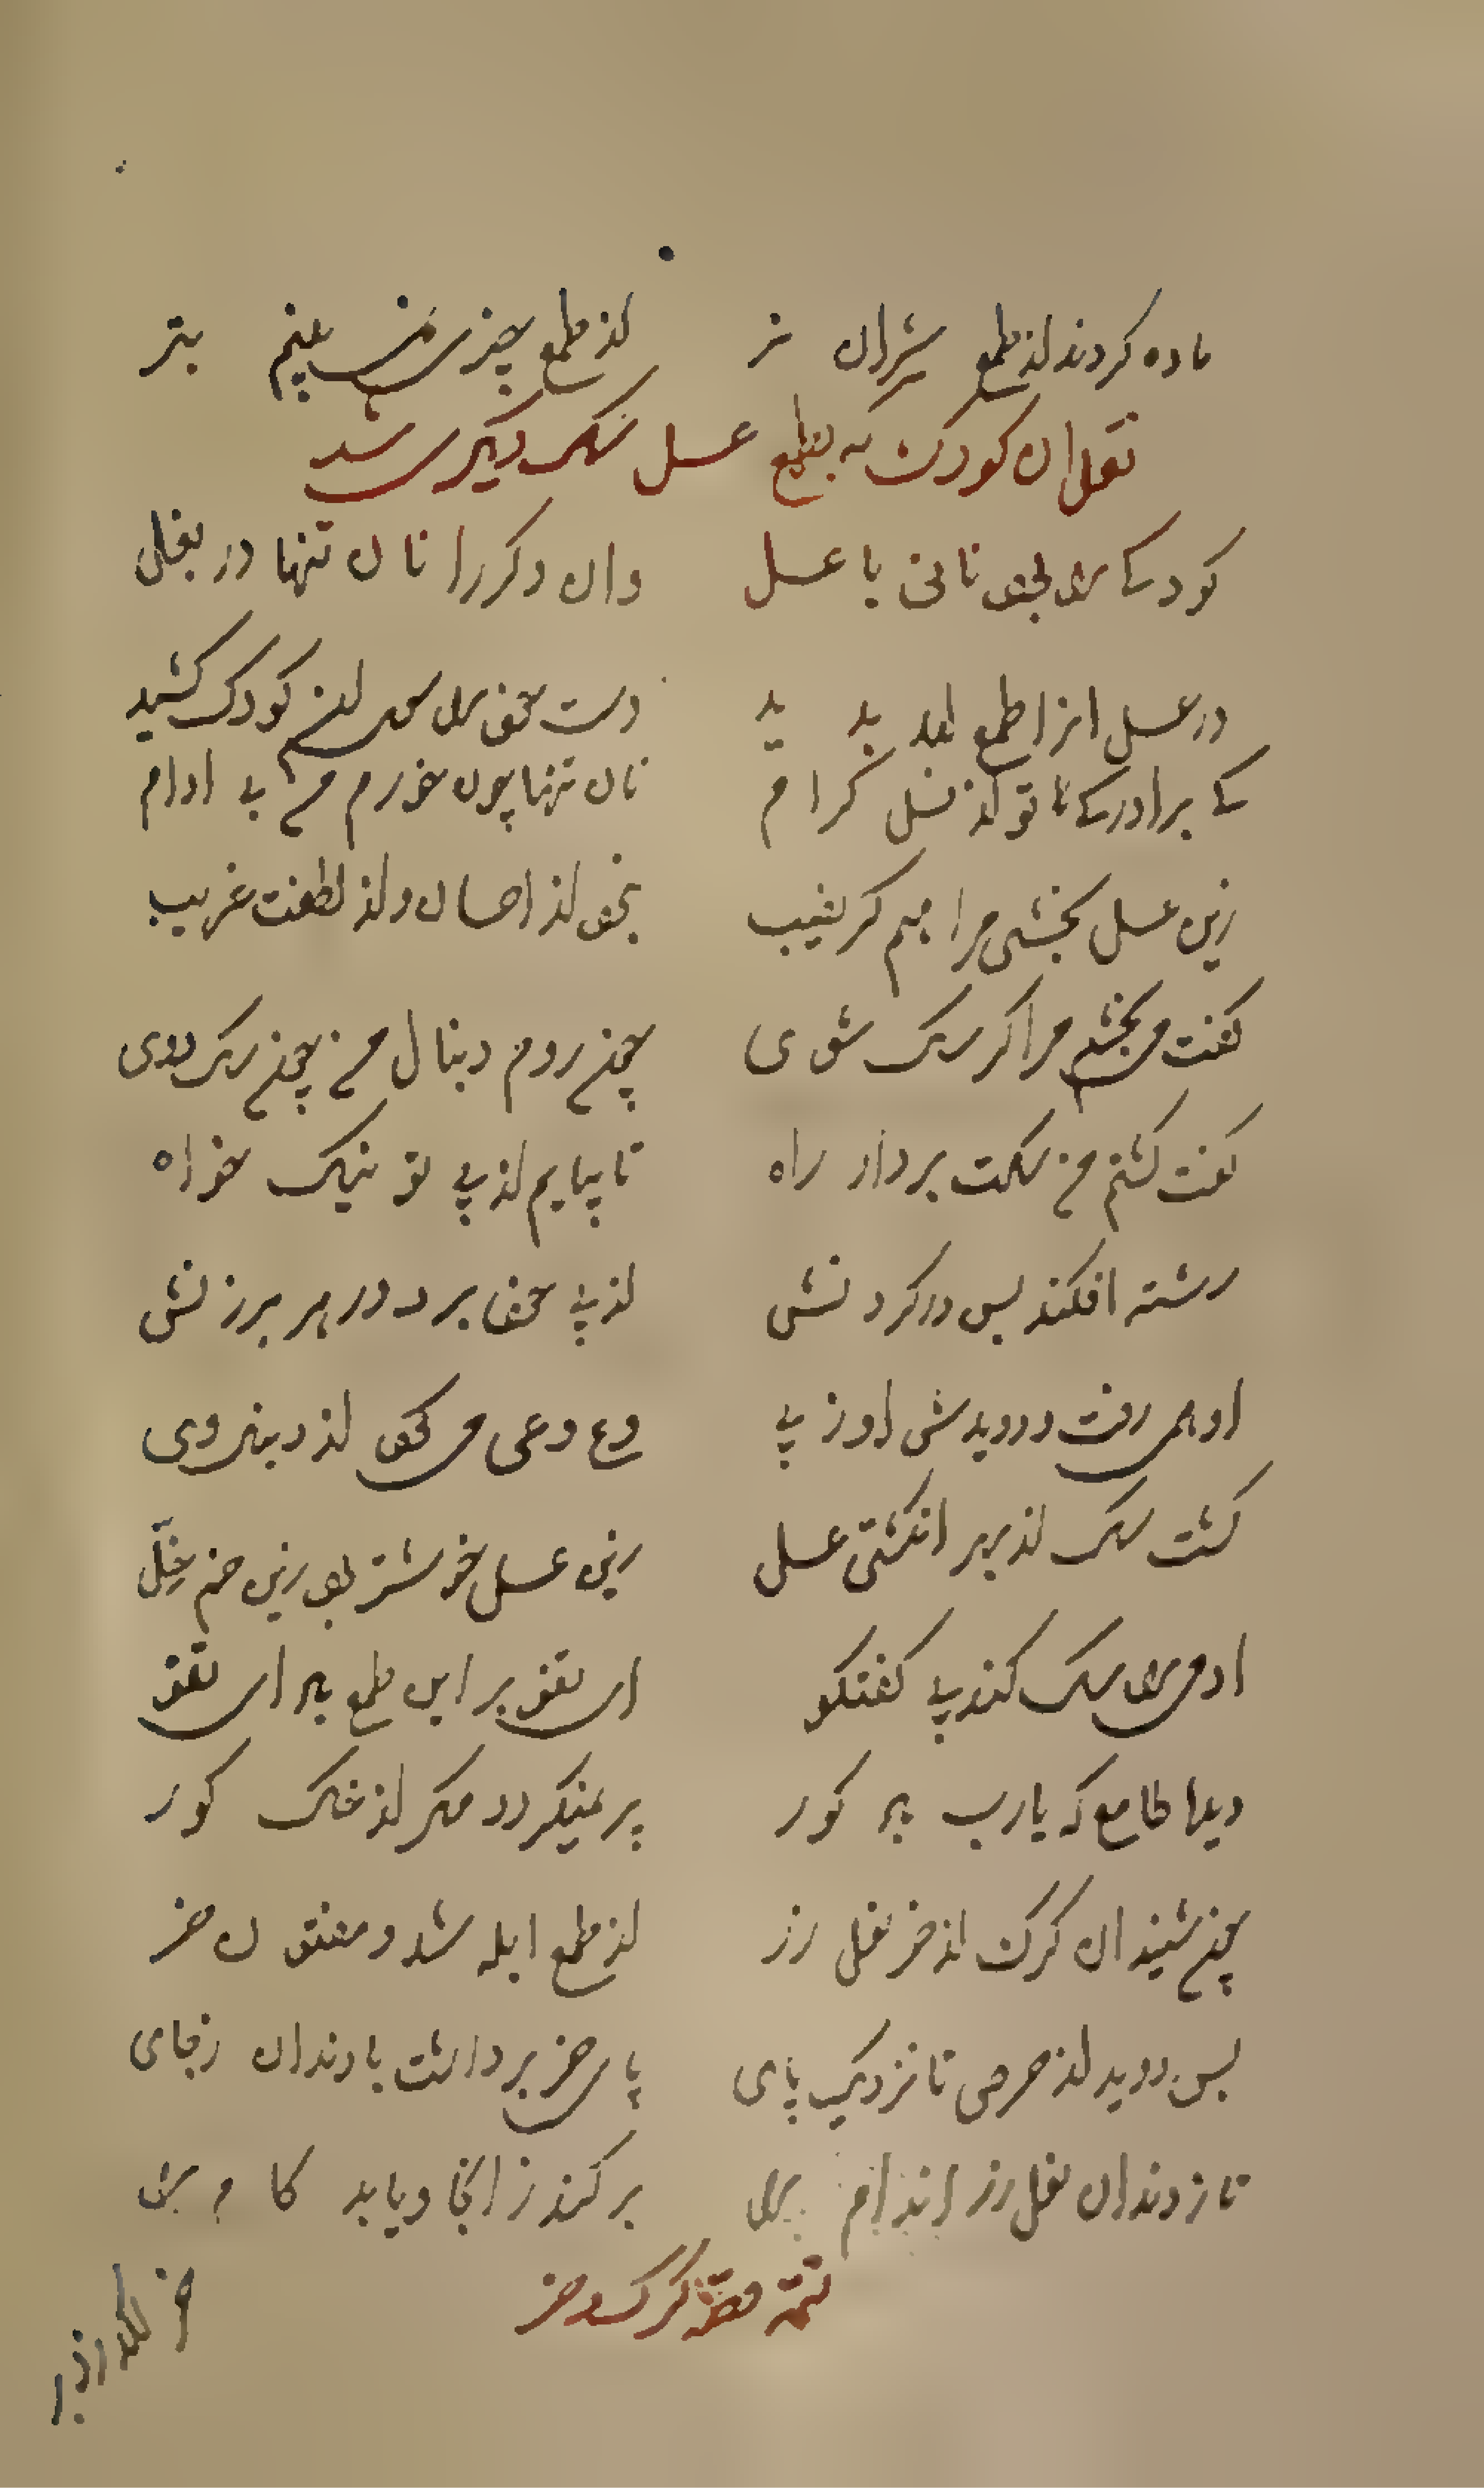 ماده کردند از طمع شیران نر از طمع چیزی نمی‌بینم بتر
نقل ان کودک که بطمع عسل سک دیکری شد
کودکی را بود نانی با عسل وان دکر را نان تنها در بغل
در عسل انرا طمع امد بدید دست خود را سوی ان کودک کشید
کای برادر کای تو از نسل کرام نان تنها چون خورم من بی ادام
زین عسل بخشی مرا هم کر نصیب نبود از احسان و از لطفت غریب
کفت می‌بخشم مرا کر سک شوی چون روم دنبال من چون سک دوی
کفت کشتم من سکت بردار راه تا بیایم از پی تو نیک خواه
رشته افکند پس در کردنش از پی خود برد در هر برزنش
او همی رفت و دویدش او ز پی وع وعی می‌کرد از دنبال وی
کشت سک از بهر انکشتی عسل زین عسل خوشتر بود زین خم خل
ادمی را سک کند بی کفتکو ای تفو بر این طمع به ای تفو
دیدها طامع که یارب به کور پر نمیکردد مکر از خاک کور
چون شنید ان کرک از خر نعل زر از طمع ابله شد و مفتون خر
پس دوید از حرص تا نزدیک پای پای خر برداشت با دندان ز جای
تا ز دندان نعل زر اندام را بر کند ز انجا و یابد کام را
تتمه قصه کرک و خر
خر لکد زد بر